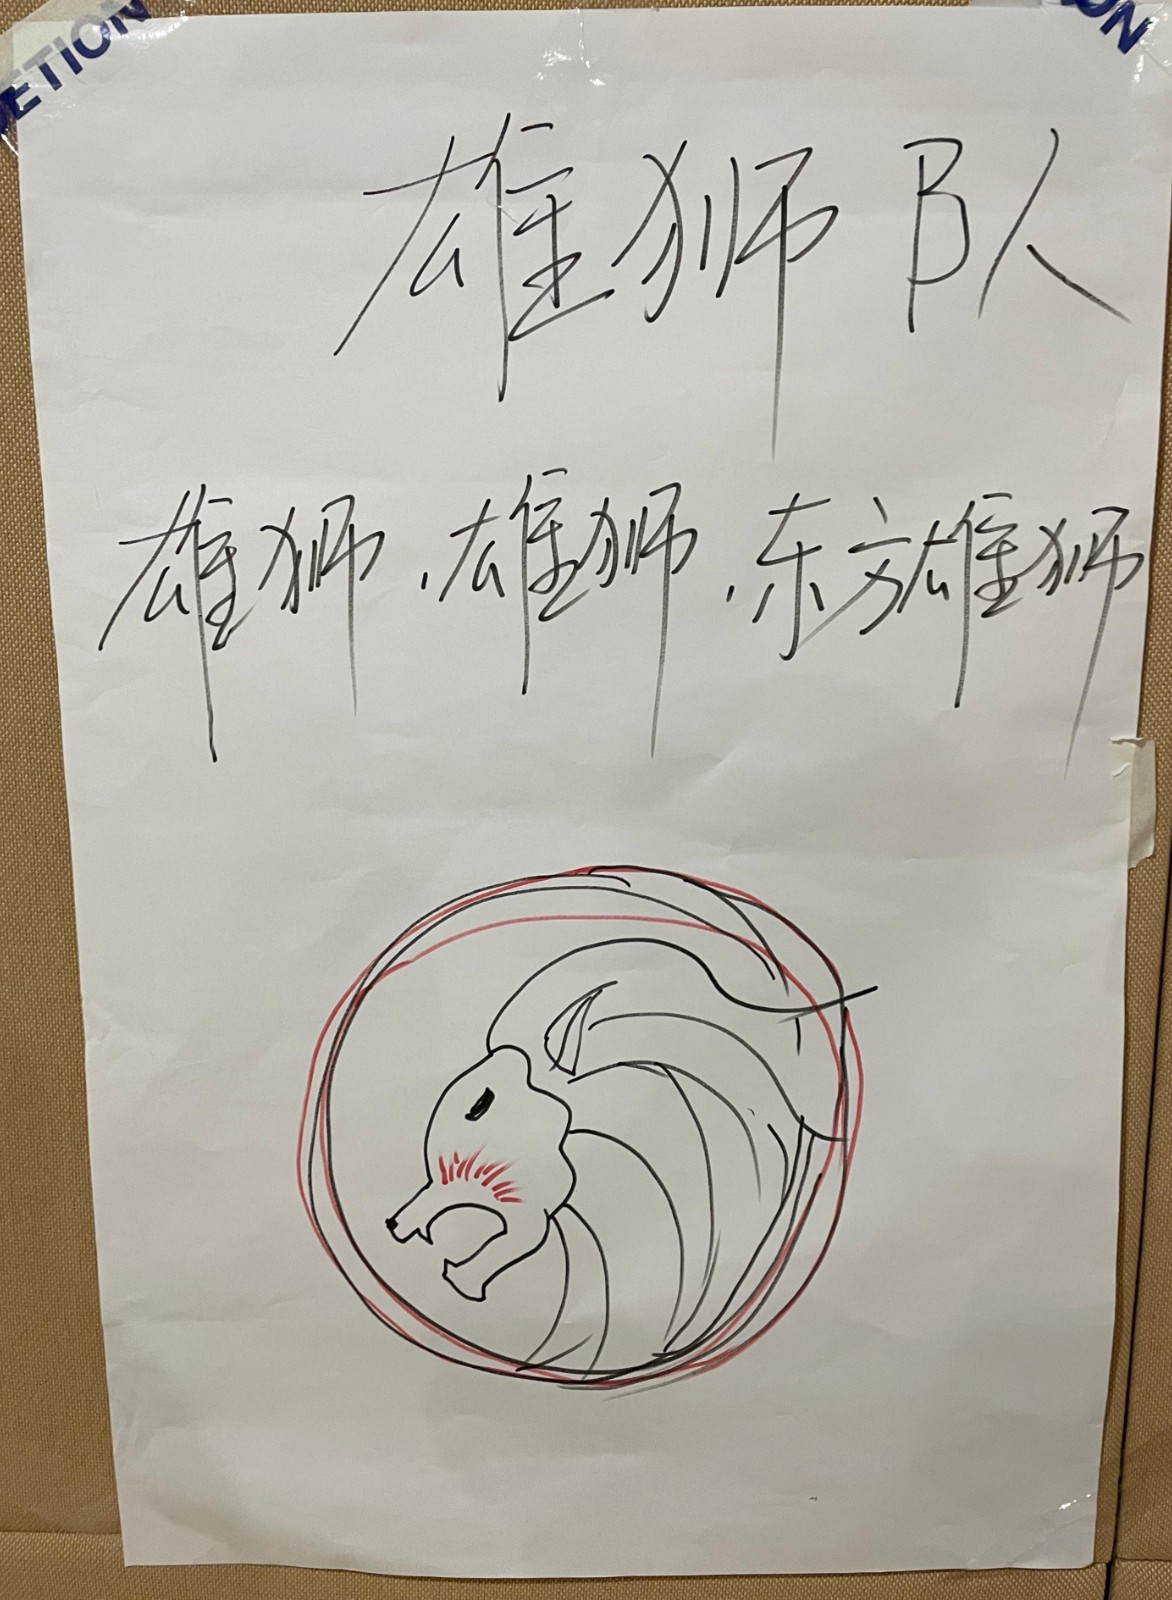 ETION
ON
雄狮队
雄狮.雄狮.东方雄狮